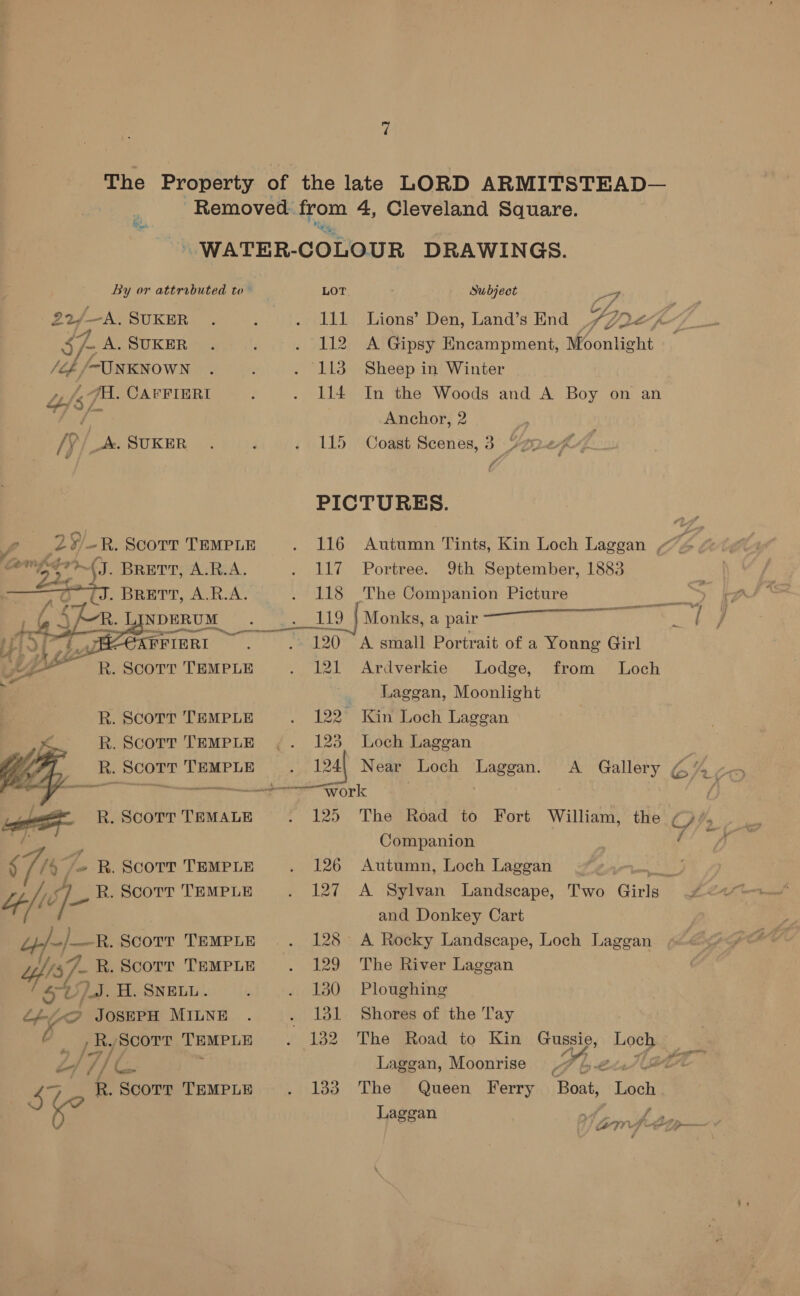 7
The Property of the late LORD ARMITSTEAD—
Removed from 4, Cleveland Square.
WATER-COLOUR DRAWINGS.
By or attributed to LOT Subject
22/– A. SUKER . . . 111 Lions' Den, Land's End
A. SUKER . . . 112 A Gipsy Encampment, Moonlight
UNKNOWN . . . 113 Sheep in Winter
H. CAFFIERI . . 114 In the Woods and A Boy on an
Anchor, 2
A. SUKER . . . 115 Coast Scenes, 3
PICTURES.
28/– R. SCOTT TEMPLE . 116 Autumn Tints, Kin Loch Laggan
J. BRETT, A.R.A. . 117 Portree. 9th September, 1883
J. BRETT, A.R.A. . 118 The Companion Picture
R. LINDERUM . . 119 Monks, a pair
H. CAFFIERI . . 120 A small Portrait of a Yonng Girl
R. SCOTT TEMPLE . 121 Ardverkie Lodge, from Loch
Laggan, Moonlight
R. SCOTT TEMPLE . 122 Kin Loch Laggan
R. SCOTT TEMPLE . 123 Loch Laggan
R. SCOTT TEMPLE . 124 Near Loch Laggan. A Gallery
work
R. SCOTT TEMALE . 125 The Road to Fort William, the
Companion
R. SCOTT TEMPLE . 126 Autumn, Loch Laggan
R. SCOTT TEMPLE . 127 A Sylvan Landscape, Two Girls
and Donkey Cart
R. SCOTT TEMPLE . 128 A Rocky Landscape, Loch Laggan
R. SCOTT TEMPLE . 129 The River Laggan
J. H. SNELL . . 130 Ploughing
JOSEPH MILNE . . 131 Shores of the Tay
R. SCOTT TEMPLE . 132 The Road to Kin Gussie, Loch
Laggan, Moonrise
R. SCOTT TEMPLE . 133 The Queen Ferry Boat, Loch
Laggan